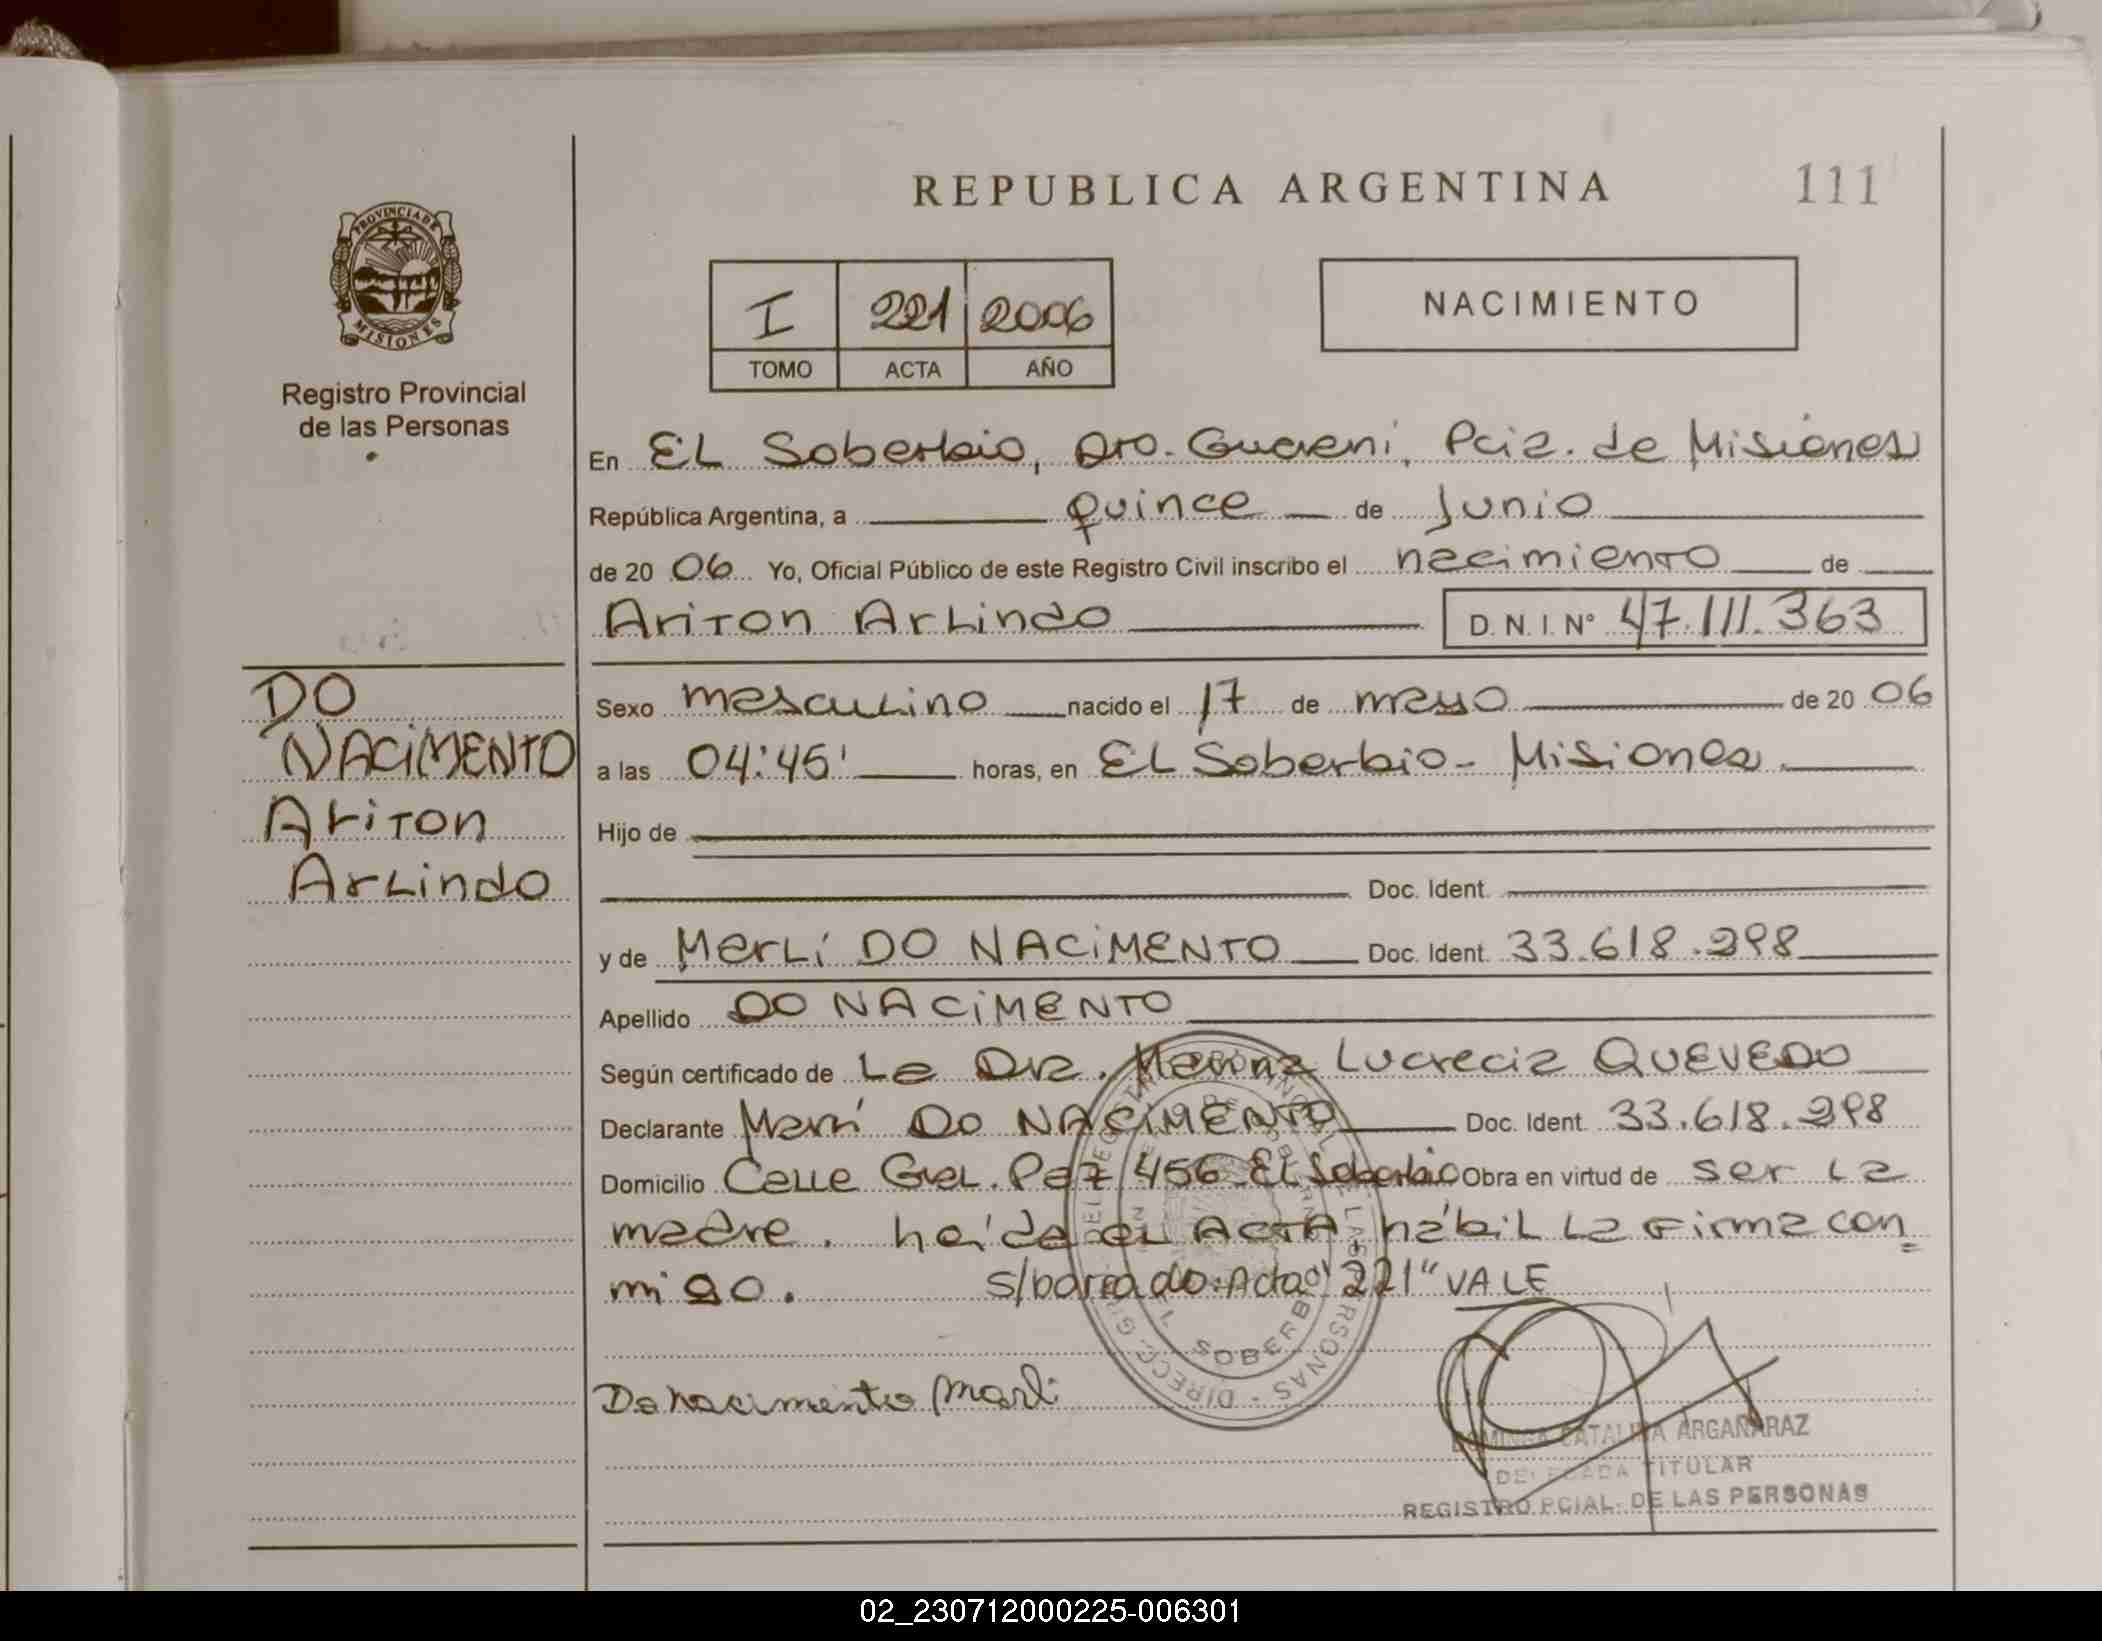 REPUBLICA ARGENTINA
111
PROVINCIA DE
MISIONES
Registro Provincial
de las Personas
I 221 2006
TOMO ACTA AÑO
NACIMIENTO
En EL Soberbio, Dto. Guarani, Pcia. de Misiones
República Argentina, a quince de Junio
de 2006 Yo, Oficial Público de este Registro Civil inscribo el nacimiento de
Ariton Arlindo D.N.I. Nº 47.111.363
DO
NACIMENTO
Ariton
Arlindo
Sexo masculino nacido el 17 de mayo de 2006
a las 04:45' horas, en El Soberbio - Misiones
Hijo de
Doc. Ident.
y de Merlí DO NACIMENTO Doc. Ident. 33.618.298
Apellido DO NACIMENTO
Según certificado de La Dra. Marina Lucrecia QUEVEDO
Declarante Marlí DO NACIMENTO Doc. Ident. 33.618.298
Domicilio Calle Gral. Paz 456 El Soberbio Obra en virtud de ser la
madre. heída el ACTA hábil la firma con
migo. s/borrado: Acta "221" VALE
Do Nacimento Marli
SOBERB
DOMINGA CATALINA ARGAÑARAZ
DELEGADA TITULAR
REGISTRO PCIAL. DE LAS PERSONAS
02_230712000225-006301